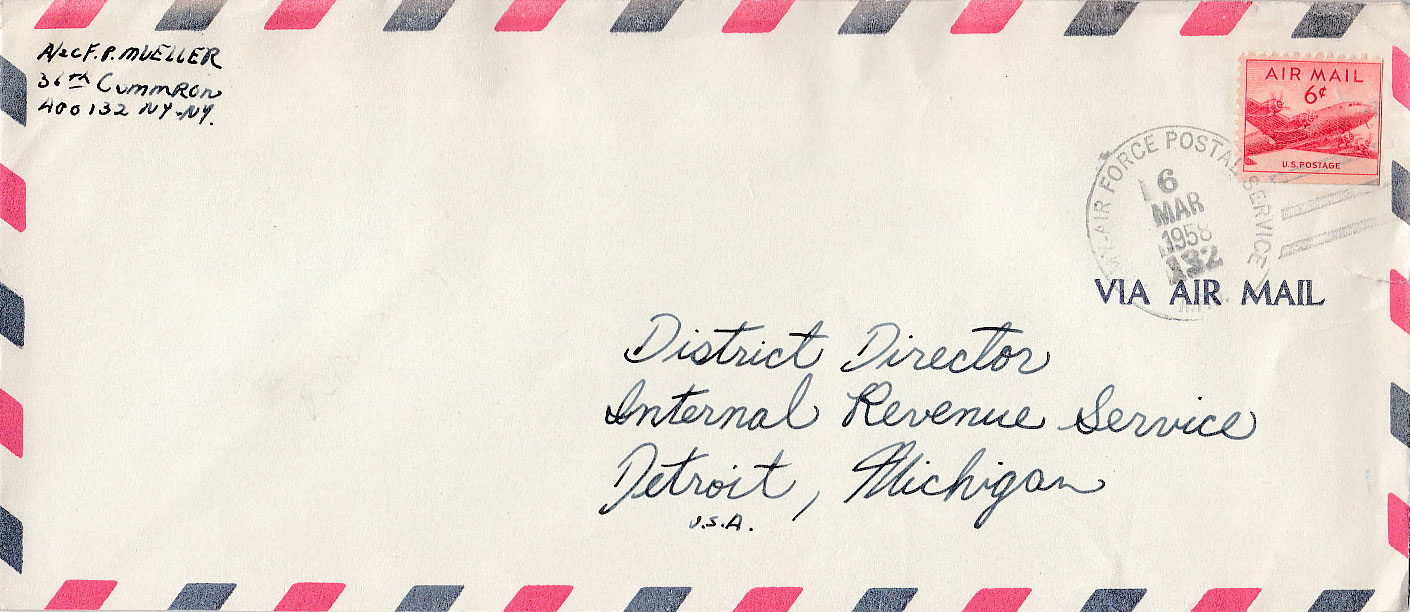 A/2C F.P. MUELLER
36TH CUMMRON
APO 132 NY-NY.
AIR MAIL
6¢
U.S. POSTAGE
AIR FORCE POSTAL SERVICE
6
MAR
1958
132
VIA AIR MAIL
District Director
Internal Revenue Service
Detroit, Michigan
U.S.A.